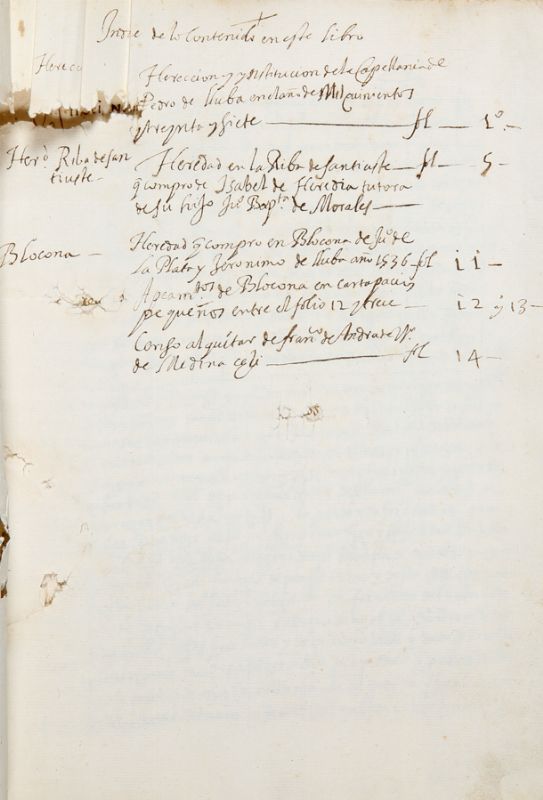 Indice de lo contenido en este libro
Herecc
Hereccion y ynstitucion de la Capellania de
Pedro de lluba en el año de Mil quinientos
y treynta y siete — fol — 1º —
Herd Riba de san
tiuste —
Heredad en la Riba de santiuste — fol — 5 —
q compro de Isabel de Heredia tutora
de su hijo Juº Bapta de Morales —
Blocona —
Heredad q compro en Blocona de Juº de
la Plata y Jeronimo de lluba año 1536 fol 11 —
Apeamdos de Blocona en cartapacios
pequeños entre el folio 12 y trece — 12 y 13 —
Censo al quitar de franco de Andrade Vº
de Medina celi — fol 14 —